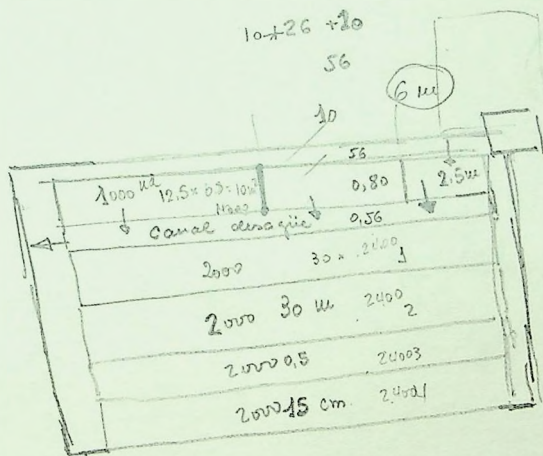 10+26+20
56
6 m
10
56
1000 m2 12,5 × 0,80 2,5 m
Canal desagüe 0,56
2000 30 × 2400 1
2000 30 m 2400 2
2000 0,5 2400 3
2000 15 cm. 2400